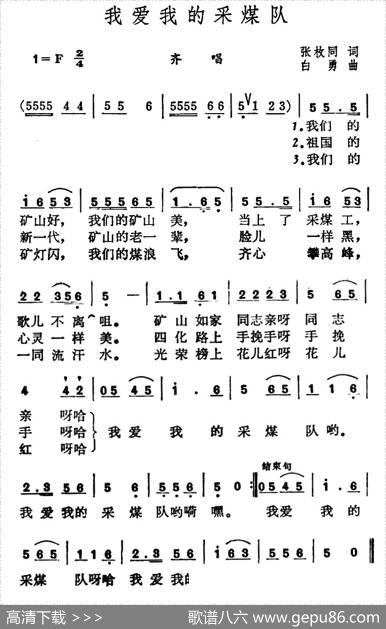 我爱我的采煤队
1=F 2/4 齐唱 张枚同 词
白勇 曲
(5555 44 | 55 6 | 5555 66 | 5 1 23) | 55.5 |
1.我们的
2.祖国的
3.我们的
i 653 | 55565 | 1.65 | 55.5 | i 653 |
矿山好, 我们的矿山 美, 当上了 采煤工,
新一代, 矿山的老一 辈, 脸儿 一样黑,
矿灯闪, 我们的煤浪 飞, 齐心 攀高峰,
22 356 | 5 — | 1.1 61 | 2223 | 5 65 |
歌儿 不离 咀。 矿山如家 同志亲呀 同志
心灵 一样 美。 四化路上 手挽手呀 手挽
一同 流汗 水。 光荣榜上 花儿红呀 花儿
4 42 | 05 45 | i . 6 | 5 65 | 11 6 |
亲 呀哈
手 呀哈 我爱 我 的 采煤 队哟。
红 呀哈
2.3 56 | i 6 | 55 56 | 5 0 :‖ 05 45 | i . 6 |
结束句
我爱我的 采煤 队哟嗬 嘿。 我爱 我的
565 | 116 | 2.3 56 | i 0 ‖
采煤 队呀哈 我爱我的
高清下载 >>> 歌谱八六 www.gepu86.com